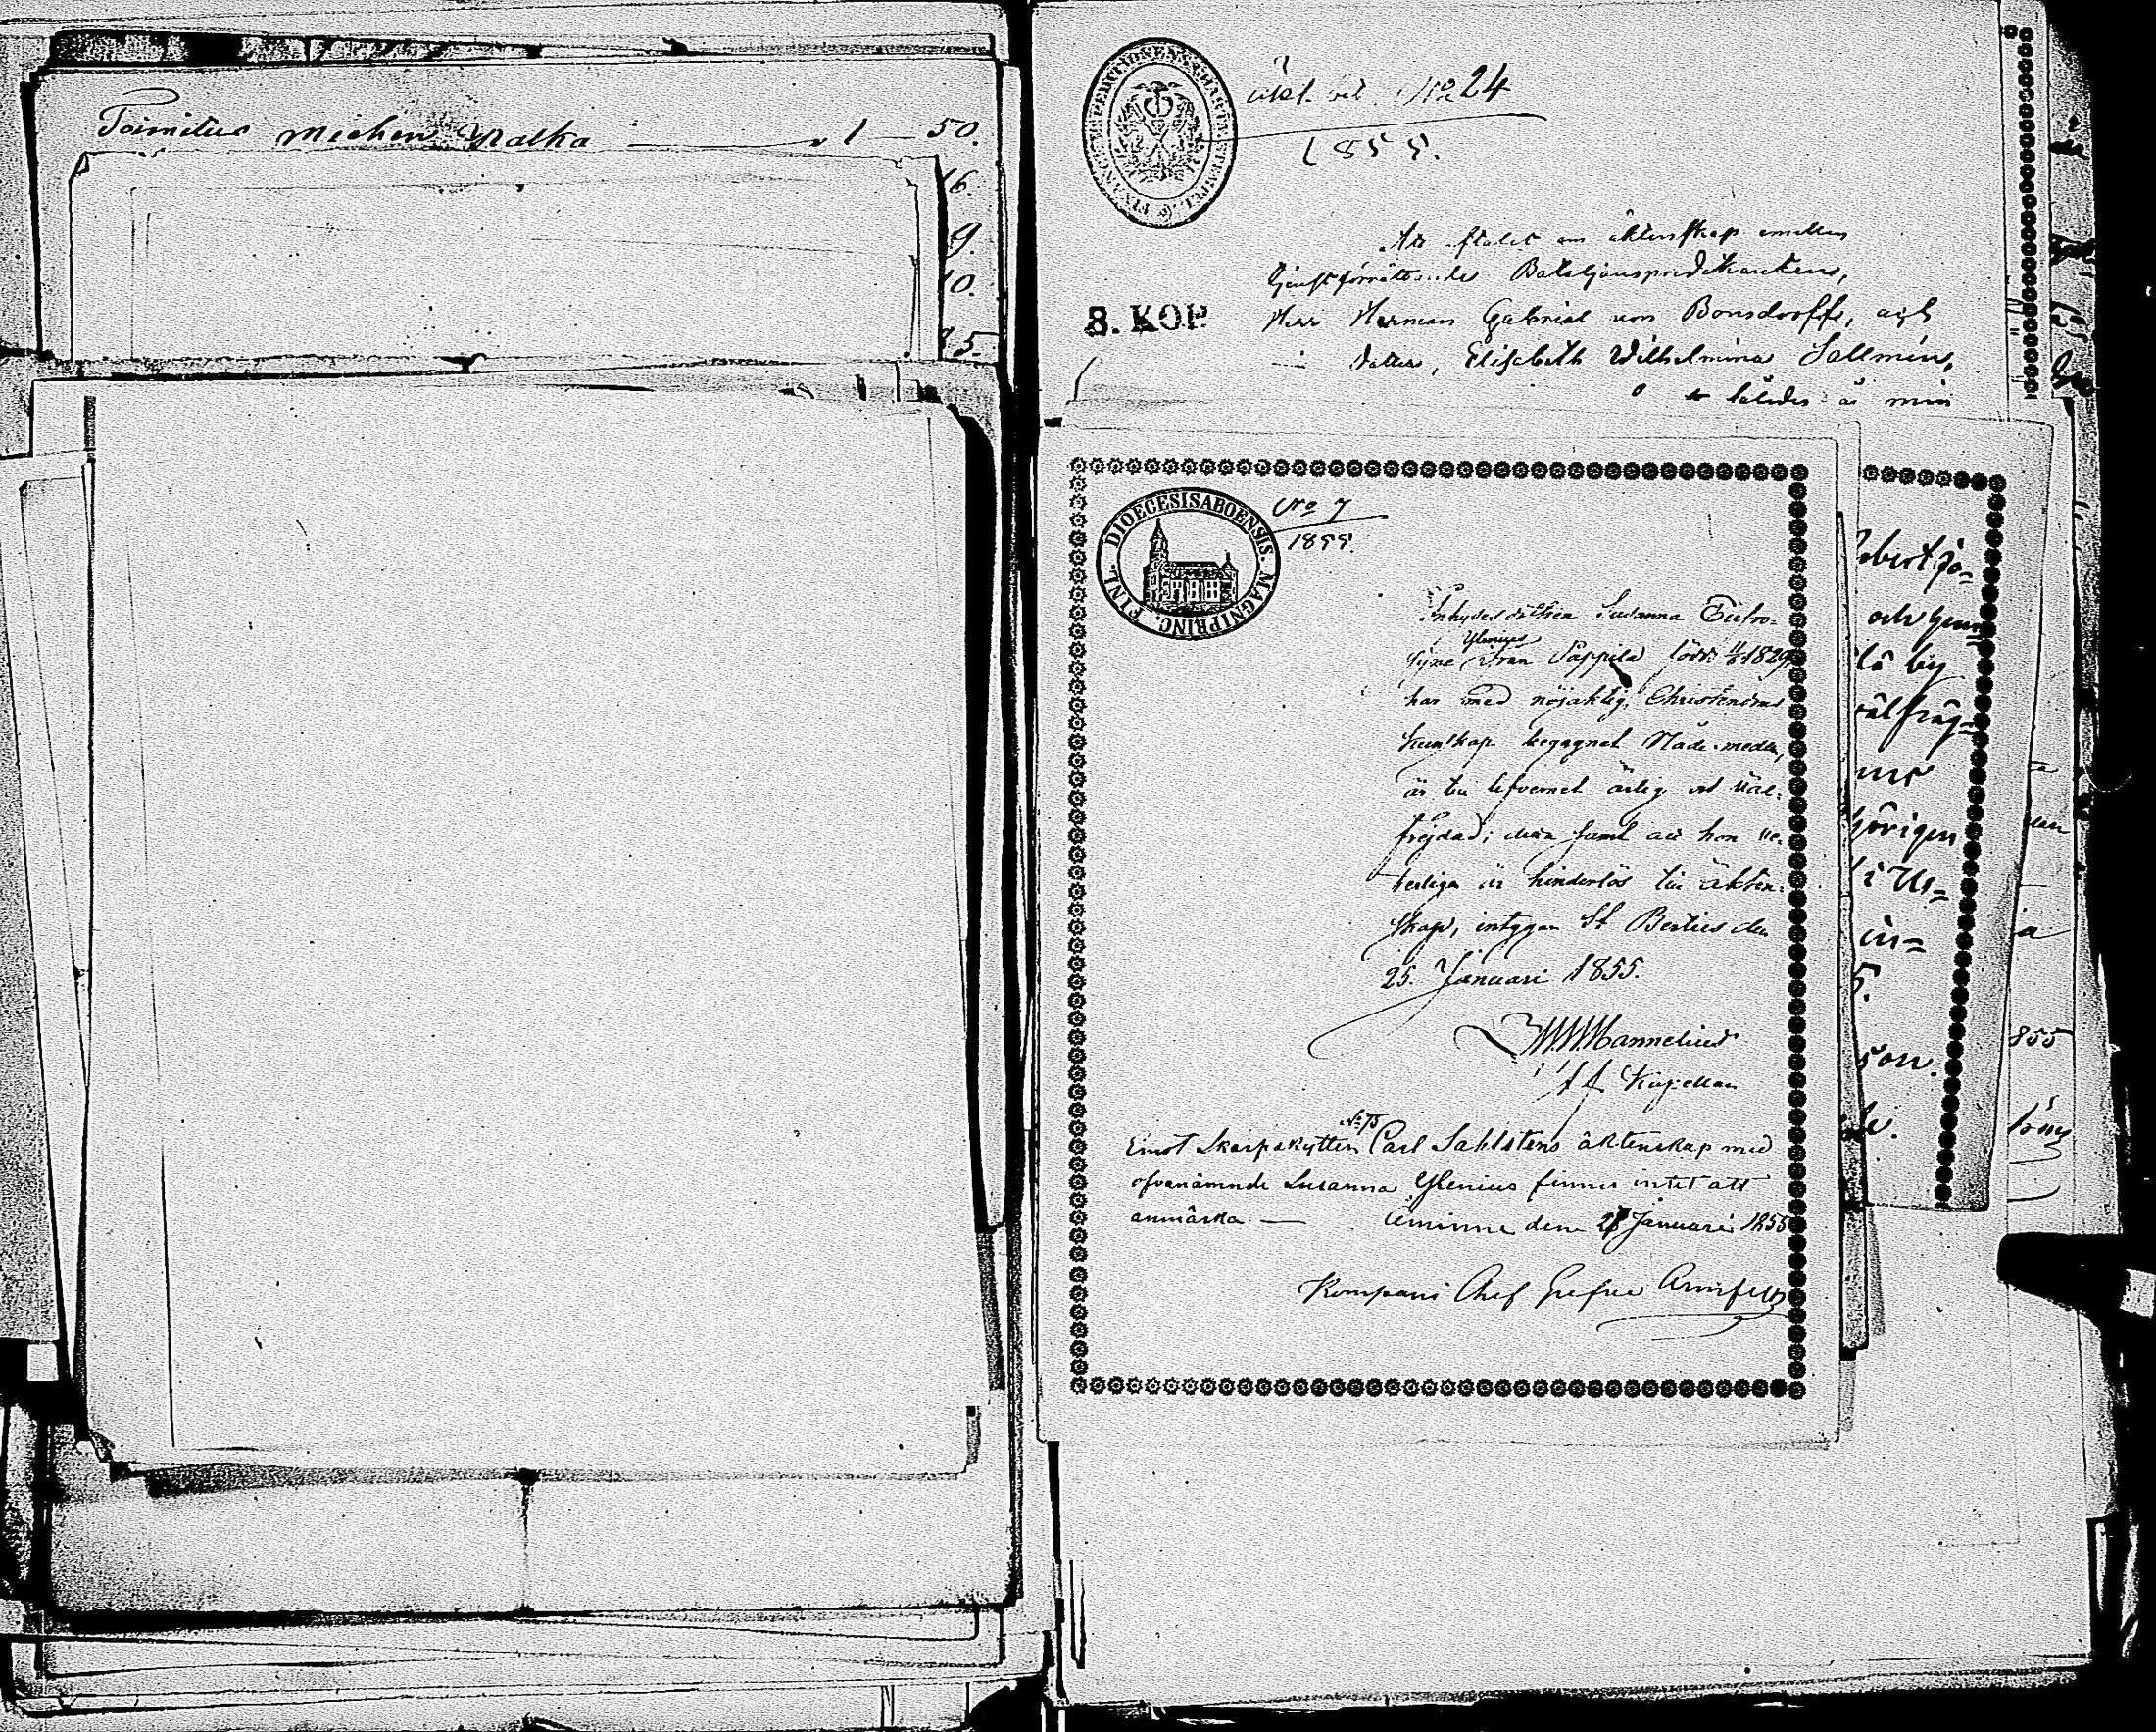 Toimitus miehen palka 1 50.
16.
9.
10.
35.
FINANCE EXPEDITIONENS CHARTÆ STEMPEL
N:o 24
1855.
8. KOP.
Att aftalet om äktenskap emellan
tjenstförrättande Bataljonspredikanten,
Herr Herman Gabriel von Bonsdorff, och
min dotter, Elisabeth Wilhelmina Sallmén,
således är min
DIOECESIS ABOENSIS. MAGNI PRINC. FINL.
No 7
1855.
Inhysesdottren Susanna Eufro-
Ylenius
syne från Pappila född 1829
har med nöjaktig Christendoms
kunskap begagnat Nådemedlen,
är till lefvernet ärlig och väl-
frejdad; men samt att hon ve-
terligen är hinderlös till äkten-
skap, intygar St Bertils den
25. Januari 1855.
Mannelius
Kapellan
Emot Skarpskytten No 75 Carl Sahlstens äktenskap med
ofvanämnde Susanna Ylenius finnes intet att
anmärka — Åminne den 28 Januari 1855
Kompani Chef Grefve Armfelt
och
by
hörigen
i
in-
5.
son.
855